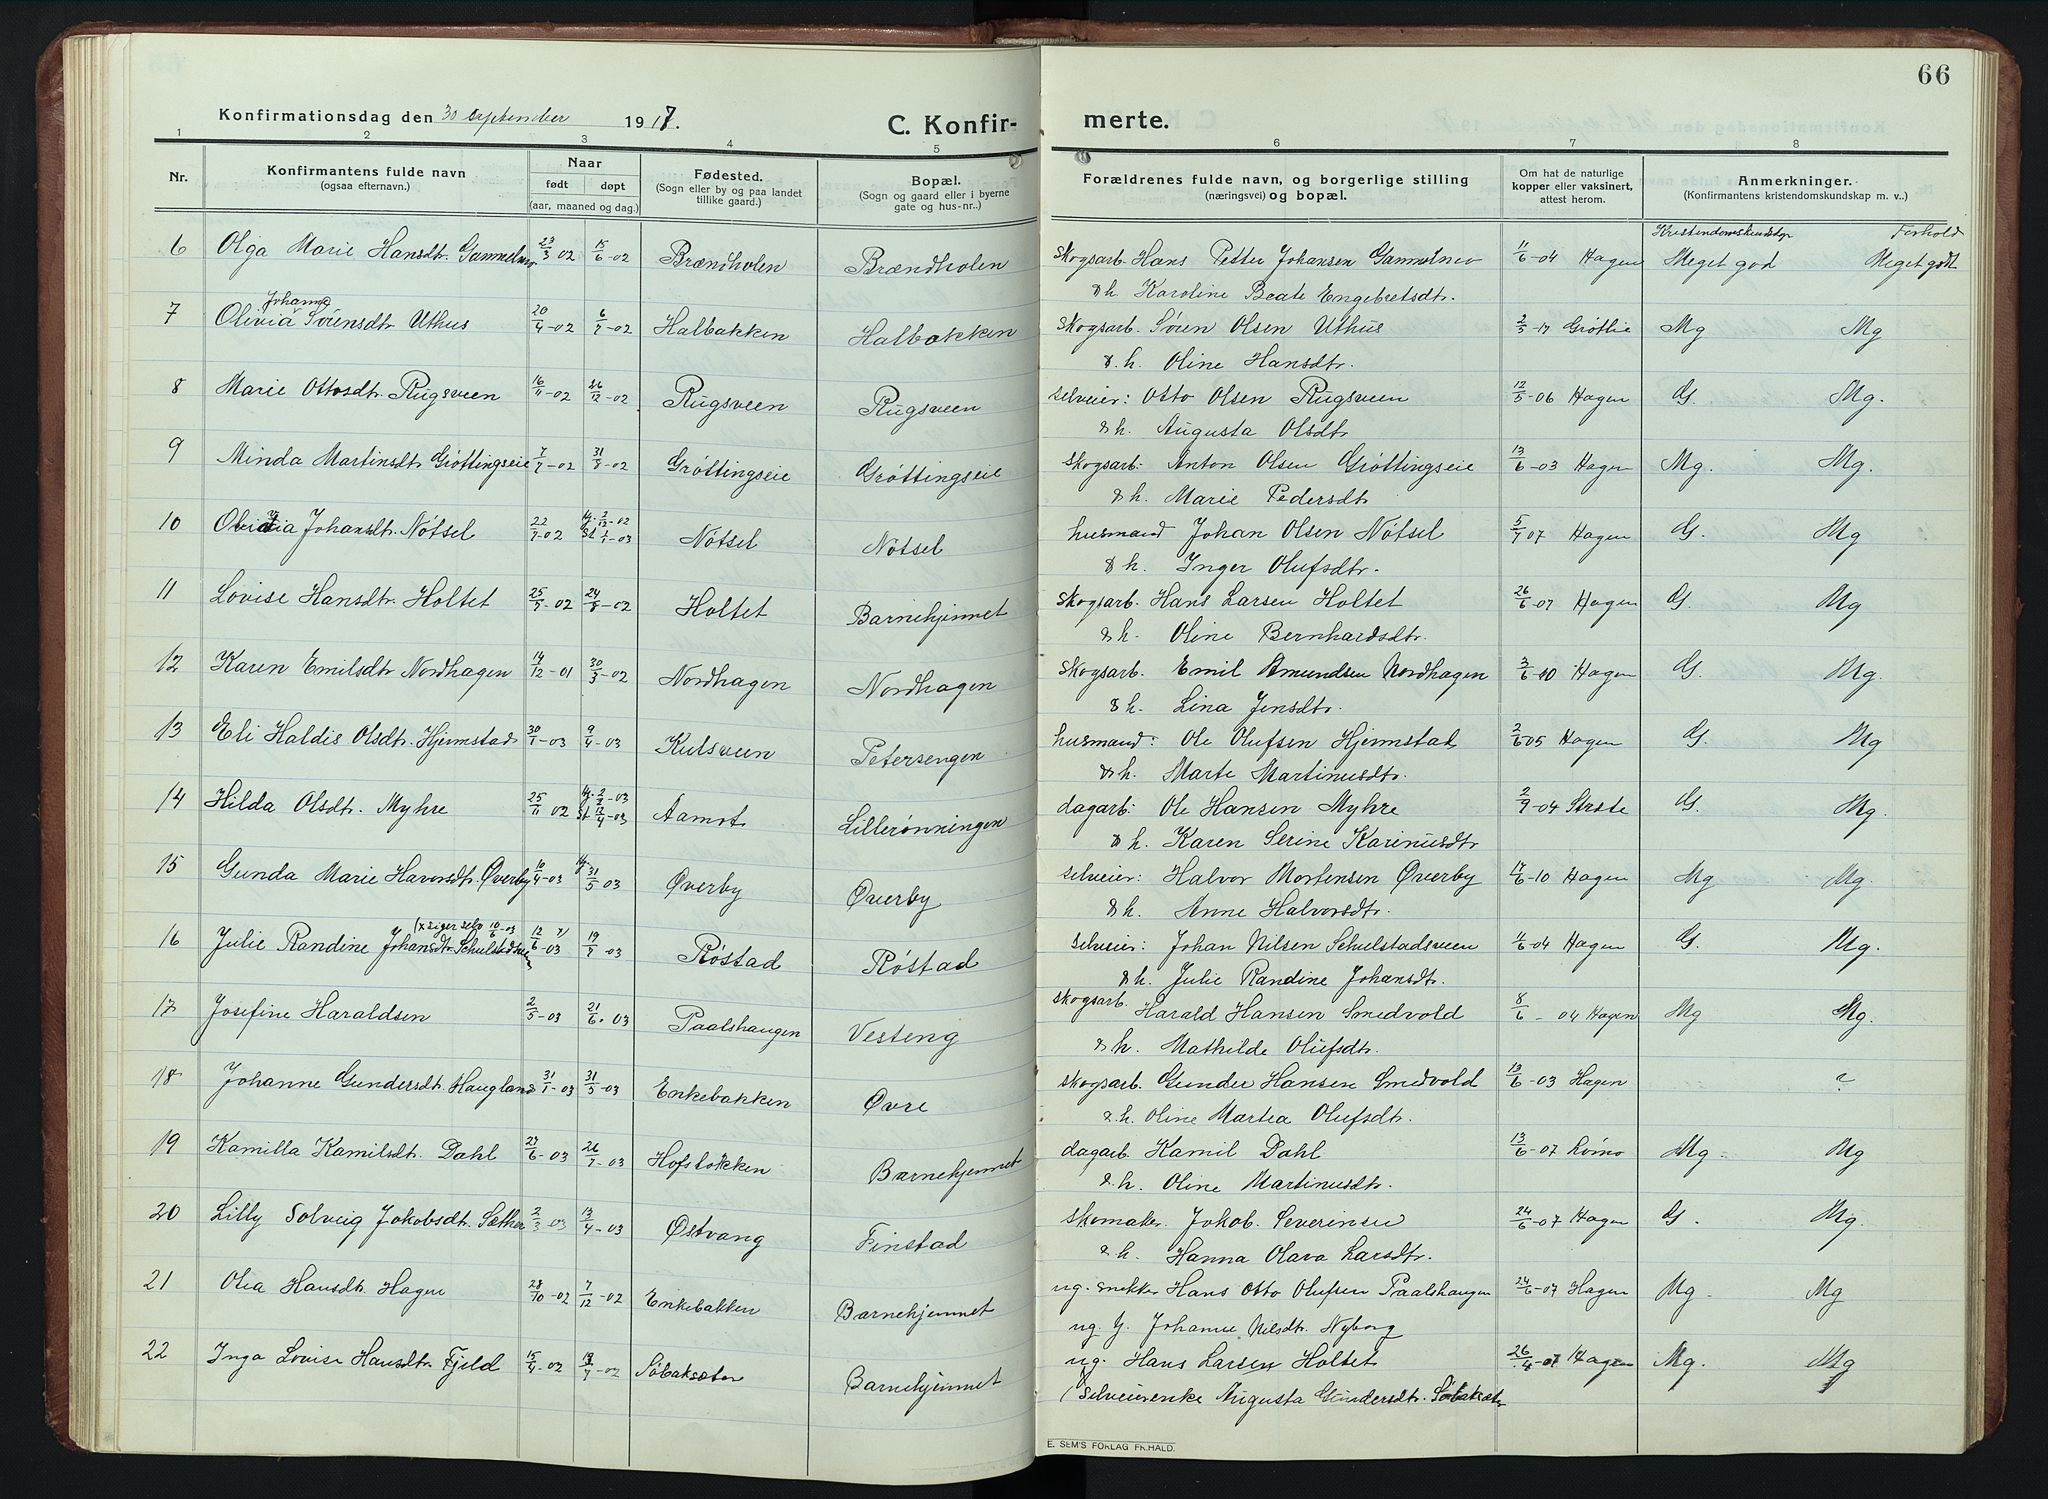 66
Konfirmationsdag den 30 september 1917.
C. Konfir- merte.
1 2 3 4 5 6 7 8
Nr. Konfirmantens fulde navn (ogsaa efternavn.) Naar født døpt (aar, maaned og dag.) Fødested. (Sogn eller by og paa landet tillike gaard.) Bopæl. (Sogn og gaard eller i byerne gate og hus-nr..) Forældrenes fulde navn, og borgerlige stilling (næringsvei) og bopæl. Om hat de naturlige kopper eller vaksinert, attest herom. Anmerkninger. (Konfirmantens kristendomskundskap m. v..)
Kristendomskundskap Forhold
6 Olga Marie Hansdtr. Gammelmo 23/3 02 15/6-02 Brændholen Brændholen Skogsarb. Hans Petter Johansen Gammelmo 11/6-04 Hagen Meget god Meget godt
& h. Karoline Beate Engebretsdtr.
Johanne
7 Olivia Sørensdtr Uthus 20/4-02 6/7-02 Halbakken Halbakken Skogsarb. Søren Olsen Uthus 2/5-17 Grøtlie Mg Mg
& h. Oline Hansdtr.
8 Marie Ottosdtr. Rugsveen 16/11-02 26/12-02 Rugsveen Rugsveen selveier: Otto Olsen Rugsveen 12/5-06 Hagen G. Mg.
& h. Augusta Olsdtr
9 Minda Martinsdtr Grøttingseie 7/7-02 31/8-02 Grøttingseie Grøttingseie Skogsarb. Anton Olsen Grøttingseie 13/6-03 Hagen Mg. Mg.
& h. Marie Pedersdtr
10 Johansdtr. Nøtsel 22/7-02 2/12-02 1/1-03 Nøtsel Nøtsel husmand Johan Olsen Nøtsel 5/7 07 Hagen G. Mg
& h. Inger Olufsdtr.
11 Lovise Hansdtr. Holtet 25/5-02 24/8-02 Holtet Barnehjemmet Skogsarb. Hans Larsen Holtet 26/6-07 Hagen G. Mg
& h. Oline Bernhardsdtr.
12 Karen Emilsdtr Nordhagen 14/12-01 30/3-02 Nordhagen Nordhagen Skogsarb. Emil Amundsen Nordhagen 3/6-10 Hagen G. Mg.
& h. Lina Jensdtr.
13 Eli Haldis Olsdtr. Hjemstad 30/1-03 9/4-03 Kulsveen Petersengen husmand: Ole Olufsen Hjemstad 2/6 05 Hagen G. Mg
& h. Marte Martinusdtr.
14 Hilda Olsdtr. Myhre 25/11 02 2/2-03 12/4-03 Aamot Lillerønningen dagarb: Ole Hansen Myhre 2/9-04 Strøte G. Mg.
& h. Karen Serine Karinusdtr
15 Gunda Marie Havorsdtr. Øverby 10/4-03 31/5 03 Øverby Øverby selveier: Halvor Mortensen Øverby 17/6-10 Hagen Mg Mg.
& h. Anne Halvorsdtr.
(x siger selv 10/6-03
16 Julie Randine Johansdtr. Schulstadsveen 12/6-03 19/7-03 Røstad Røstad selveier: Johan Nilsen Schulstadsveen 11/6-04 Hagen G. Mg.
& h. Julie Randine Johansdtr.
17 Josefine Haraldsen 2/5-03 21/6-03 Paalshaugen Vesteng Skogsarb. Harald Hansen Smedvold 8/6-04 Hagen Mg Mg.
& h. Mathilde Olufsdtr.
18 Johanne Gundersdtr. Haugland 31/1-03 31/5-03 Enkebakken Øvre Skogsarb. Gunder Hansen Smedvold 13/6-03 Hagen ?
& h. Oline Martea Olufsdtr.
19 Kamilla Kamilsdtr. Dahl 27/6-03 26/7-03 Hofsbakken Barnehjemmet dagarb. Kamil Dahl 13/6-07 Lømo Mg. Mg
& h. Oline Martinusdtr.
20 Lilly Solveig Jakobsdtr. Sæther 2/3-03 13/4-03 Østvang Finstad Skomaker Jokob. Severinsen 24/6-07 Hagen G. Mg.
& h. Hanna Olava Larsdtr.
21 Olea Hansdtr. Hagen 28/10-02 7/12-02 Enkebakken Barnehjemmet ug. snekker Hans Otto Olufsen Paalshaugen 24/6-07 Hagen Mg. Mg
ug. g. Johanne Nilsdtr. Nyborg
22 Inga Lovise Hansdtr. Fjeld 15/4-02 Søbaksæter Barnehjemmet ug. Hans Larsen Holtet 26/4-07 Hagen Mg. Mg
(Selveierenke Augusta Gundersdtr. Søbaksæter
E. SEM'S FORLAG FR.HALD.